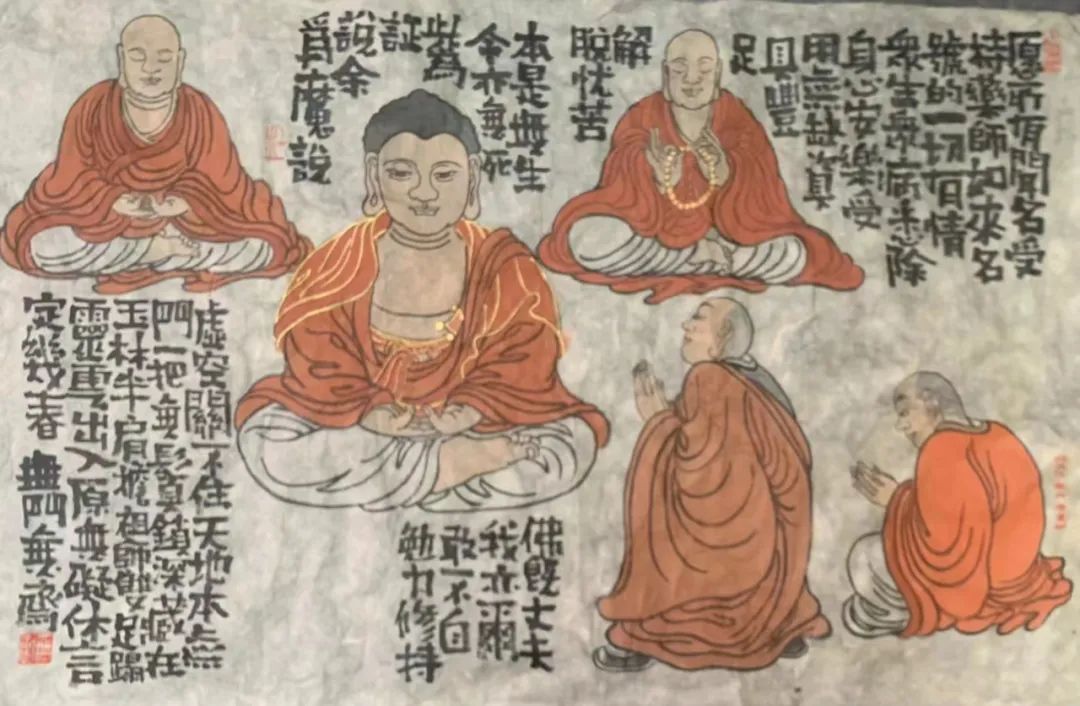 愿所有聞名受
持藥師如來名
號的一切有情
衆生衆病悉除
身心安樂受
用無缺資
具豐
足
解
脫憂苦
本是無生
今亦無死
此為
証
說余
爲魔說
佛既丈夫
我亦爾
敢不自
勉力修持
虛空關不住天地本無
門一把無鬚鎖深藏在
玉林半肩擔祖師雙足蹋
靈重出入原無礙休言
定幾春 無門無齋